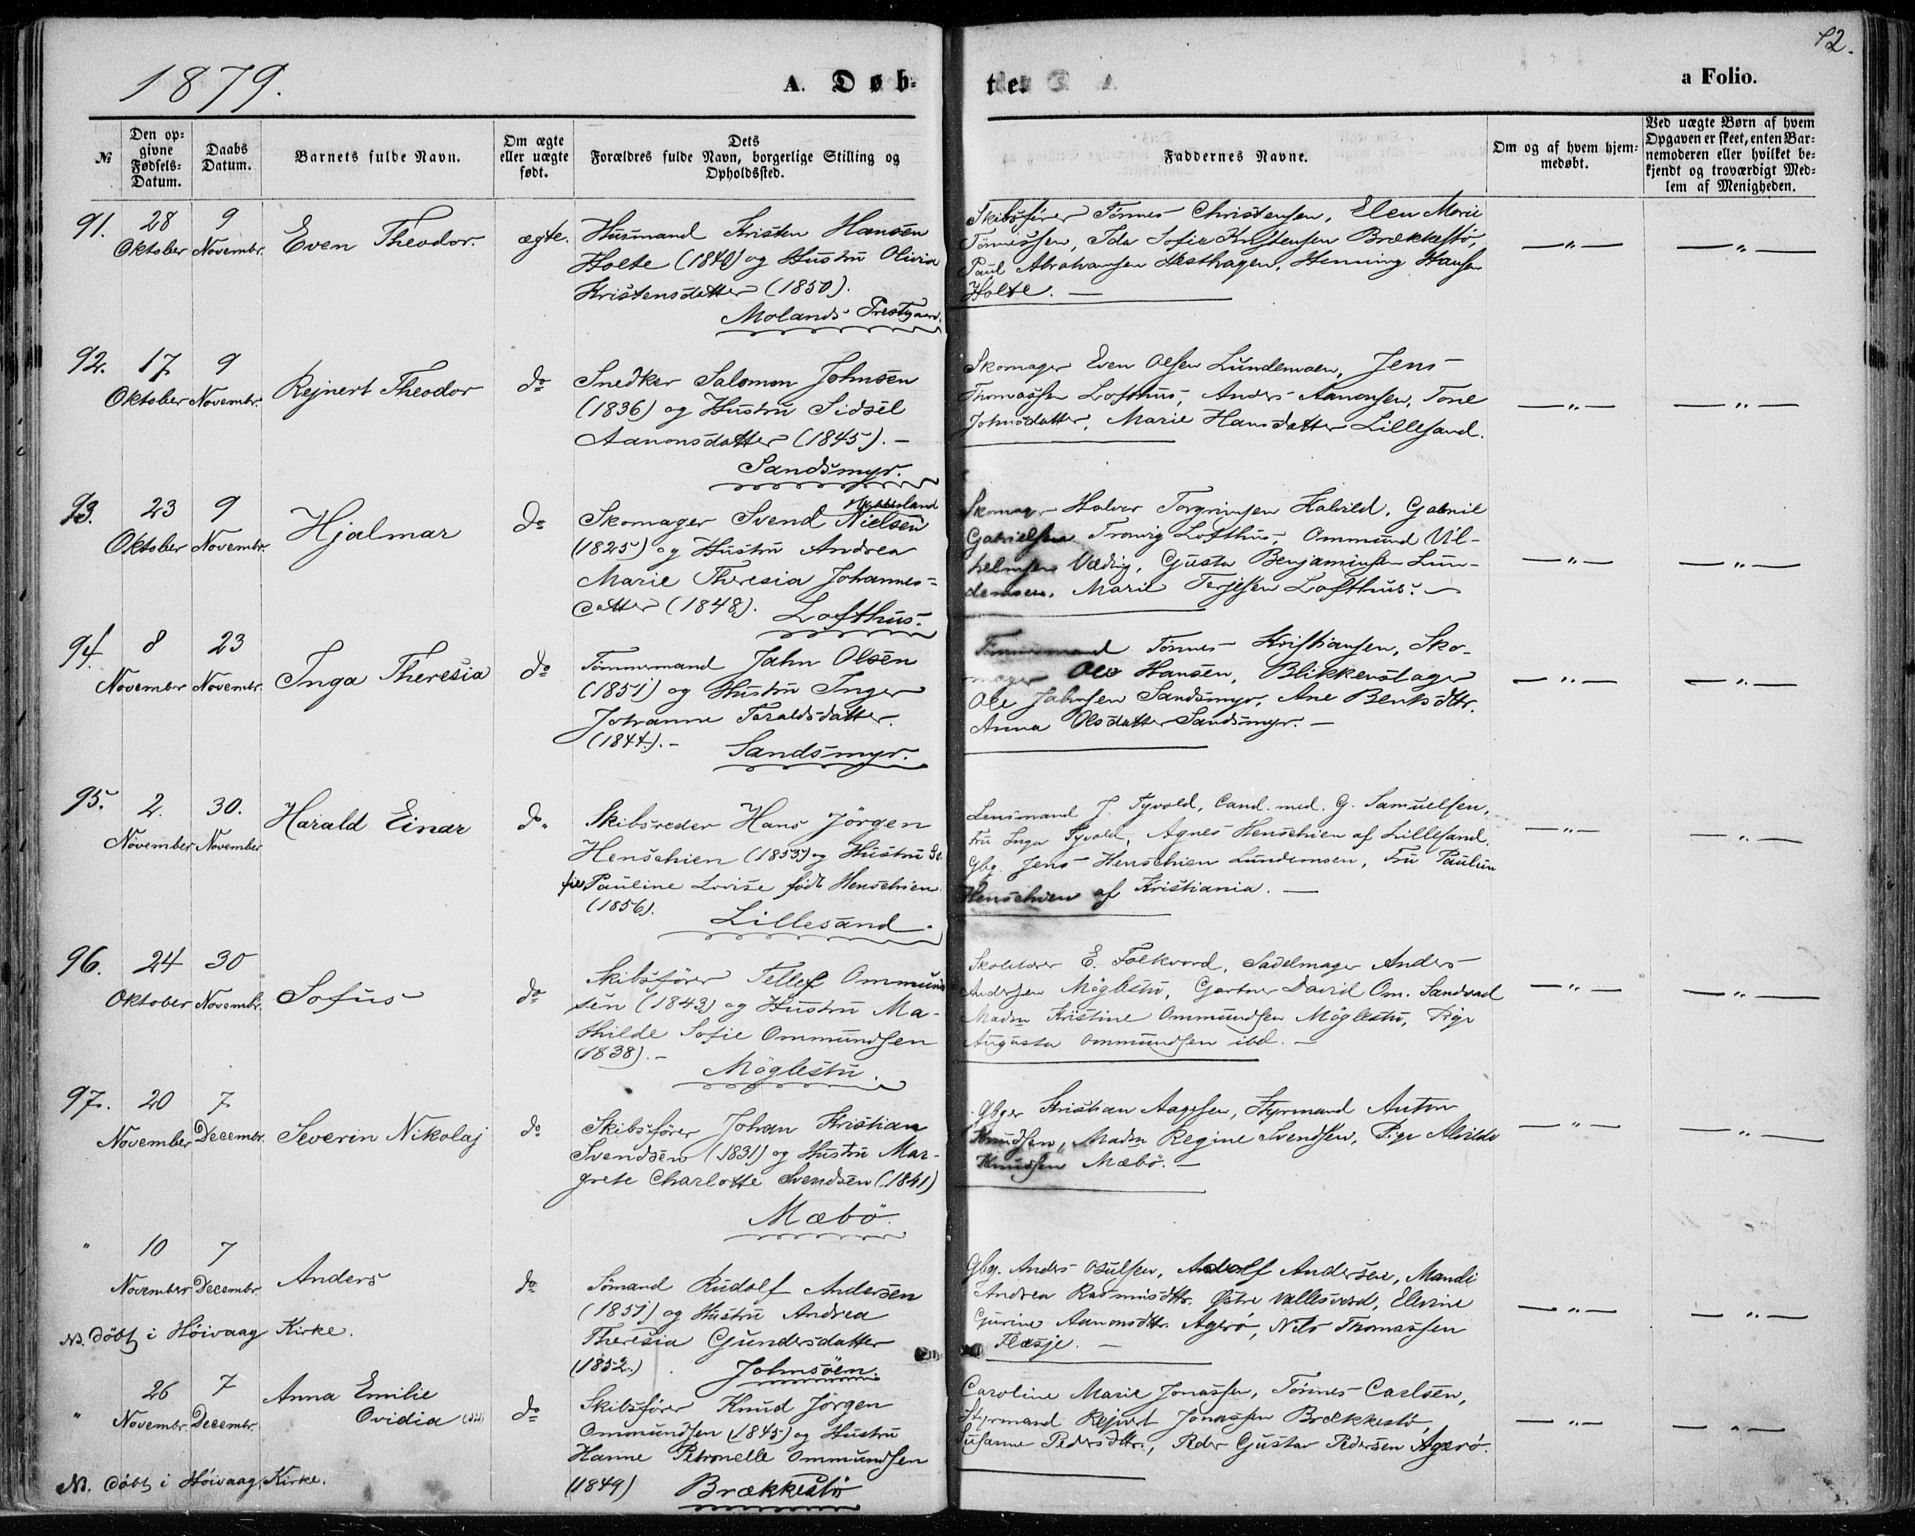 12.
1879.
A. Døb-
te.
a Folio.
№
Den op-
givne
Fødsels-
Datum.
Daabs
Datum.
Barnets fulde Navn.
Om ægte
eller uægte
født.
Dets
Forældres fulde Navn, borgerlige Stilling og
Opholdssted.
Faddernes Navne.
Om og af hvem hjem-
medøbt.
Ved uægte Børn af hvem
Opgaven er skeet, enten Bar-
nemoderen eller hvilket be-
kjendt og troværdigt Med-
lem af Menigheden.
91. 28 Oktober 9 Novembr. Even Theodor. ægte.
Husmand Kristen Hansen
Holte (1840) og Hustru Olivia
Kristensdatter (1850).
Molands Prestgaard.
Skibsfører Tønnes Christensen, Elen Marie
Tønnessen, Ida Sofie Kristensen Brækkestø,
Paul Abrahamsen Hesthagen, Henning Hansen
Holte. —
— " — — " —
92. 17 Oktober 9 Novembr. Rejnert Theodor do
Snedker Salomon Johnsen
(1836) og Hustru Sidsel
Aanonsdatter (1845). —
Sandsmyr.
Skomager Even Olsen Lundemoen, Jens
Thomassen Lofthus, Anders Aanonsen, Tone
Johnsdatter, Marie Hansdatter Lillesand.
— " — — " —
93. 23 Oktober 9 Novembr. Hjalmar do
Skomager Svend Nielsen
(1825) og Hustru Andrea
Marie Theresia Johannes-
datter (1848). Lofthus.
Skomager Halvor Torgrimsen Kalvild, Gabriel
Gabrielsen Tronvig Lofthus Ommund Vil-
helmsen Vædvig, Gusta Benjaminsen Lun-
demoen, Marie Terjesen Lofthus. —
— " — — " —
94. 8 Novembr 23 Novembr. Inga Theresia do
Tømmermand Jahn Olsen
(1851) og Hustru Inger
Johanne Taraldsdatter
(1844). —
Sandsmyr.
Tømmermand Tønnes Kristiansen, Sko-
mager Ole Hansen, Blikkenslager
Ole Jahnsen Sandsmyr, Ane Bentsdtr.
Anna Olsdatter Sandsmyr. —
— " — — " —
95. 2. November 30. November Harald Einar do.
Skibsreder Hans Jørgen
Henschien (1853) og Hustru So-
fie Pauline Lovise født Henschien
(1856).
Lillesand.
Lensmand J. Tyvold, Cand. med. G. Samuelsen,
Fru Inga Tyvold, Agnes Henschien af Lillesand.
Gbg. Jens Henschien Lundemoen, Fru Pauline
Henschien af Kristiania. —
— " — — " —
96. 24 Oktober 30 Novembr. Sofus do
Skibsfører Tellef Ommund
sen (1843) og Hustru Ma-
thilde Sofie Ommundsen
(1838). —
Møglestu.
Skolelærer E. Folkvord, Sadelmager Anders
Andersen Møglestu, Gartner David Om. Sandvad
Madm Kristine Ommundsen Møglestu, Pige
Augusta Ommundsen ibd. —
— " — — " —
97. 20 November 7 Decembr. Severin Nikolaj do
Skibsfører Johan Kristian
Svendsen (1831) og Hustru Mar-
grete Charlotte Svendsen (1841)
Mæbø.
Gbger Kristian Aagesen, Styrmand Anton
Knudsen, Madm Regine Svendsen, Pige Alvilde
Knudsen Mæbø. —
— " — — " —
" 10 November 7 Decembr. Anders do
NB. døbt i Høivaag Kirke.
Sømand Rudolf Andersen
(1851) og Hustru Andrea
Theresia Gundersdatter
(1852.) Johnsøen.
Gbg. Anders Osulsen, Adolf Andersen, Mandi
Andrea Rasmusdtr. Østre Vallesverd, Elevine
Gurine Aanonsdtr. Agerø, Nils Thomassen
Flæsje. —
— " — — " —
" 26 Novembr. 7 Decembr. Anna Emilie
Ovidia do
NB. døbt i Høivaag Kirke.
Skibsfører Knud Jørgen
Ommundsen (1845) og Hustru
Hanne Petronelle Ommundsen
(1849) Brækkestø
Caroline Marie Jonassen, Tønnes Carlsen,
Styrmand Rejnert Jonassen Brækkestø,
Susanne Pedersdtr., Peder Gustav Pedersen Agerø.
— " — — " —